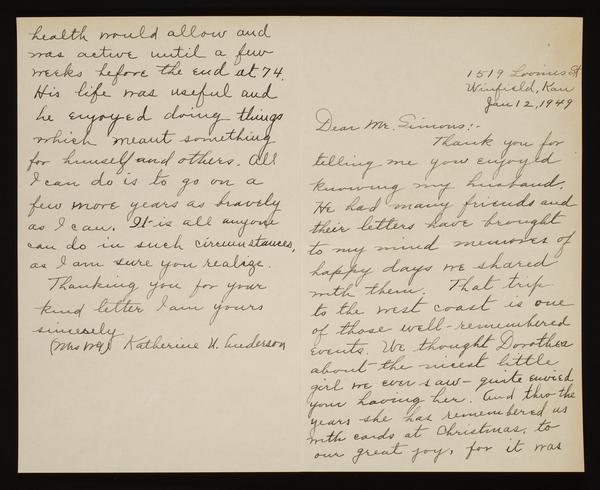 1519 Loomis St
Winfield, Kan
Jan 12, 1949
Dear Mr. Simons:-
Thank you for
telling me you enjoyed
knowing my husband.
He had many friends and
their letters have brought
to my mind memories of
happy days we shared
with them. That trip
to the west coast is one
of those well-remembered
events. We thought Dorothea
about the nicest little
girl we ever saw - quite envied
your having her. And thro the
years she has remembered us
with cards at Christmas, to
our great joy, for it was
health would allow and
was active until a few
weeks before the end at 74.
His life was useful and
he enjoyed doing things
which meant something
for himself and others. All
I can do is to go on a
few more years as bravely
as I can. It is all anyone
can do in such circumstances,
as I am sure you realize.
Thanking you for your
kind letter I am yours
sincerely
(Mrs. Katherine H. Anderson